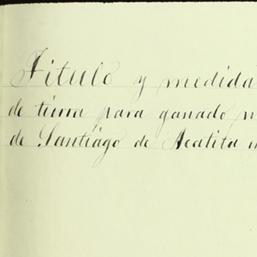 Titulo y medida
de tierra para ganado m
de Santiago de Acatita